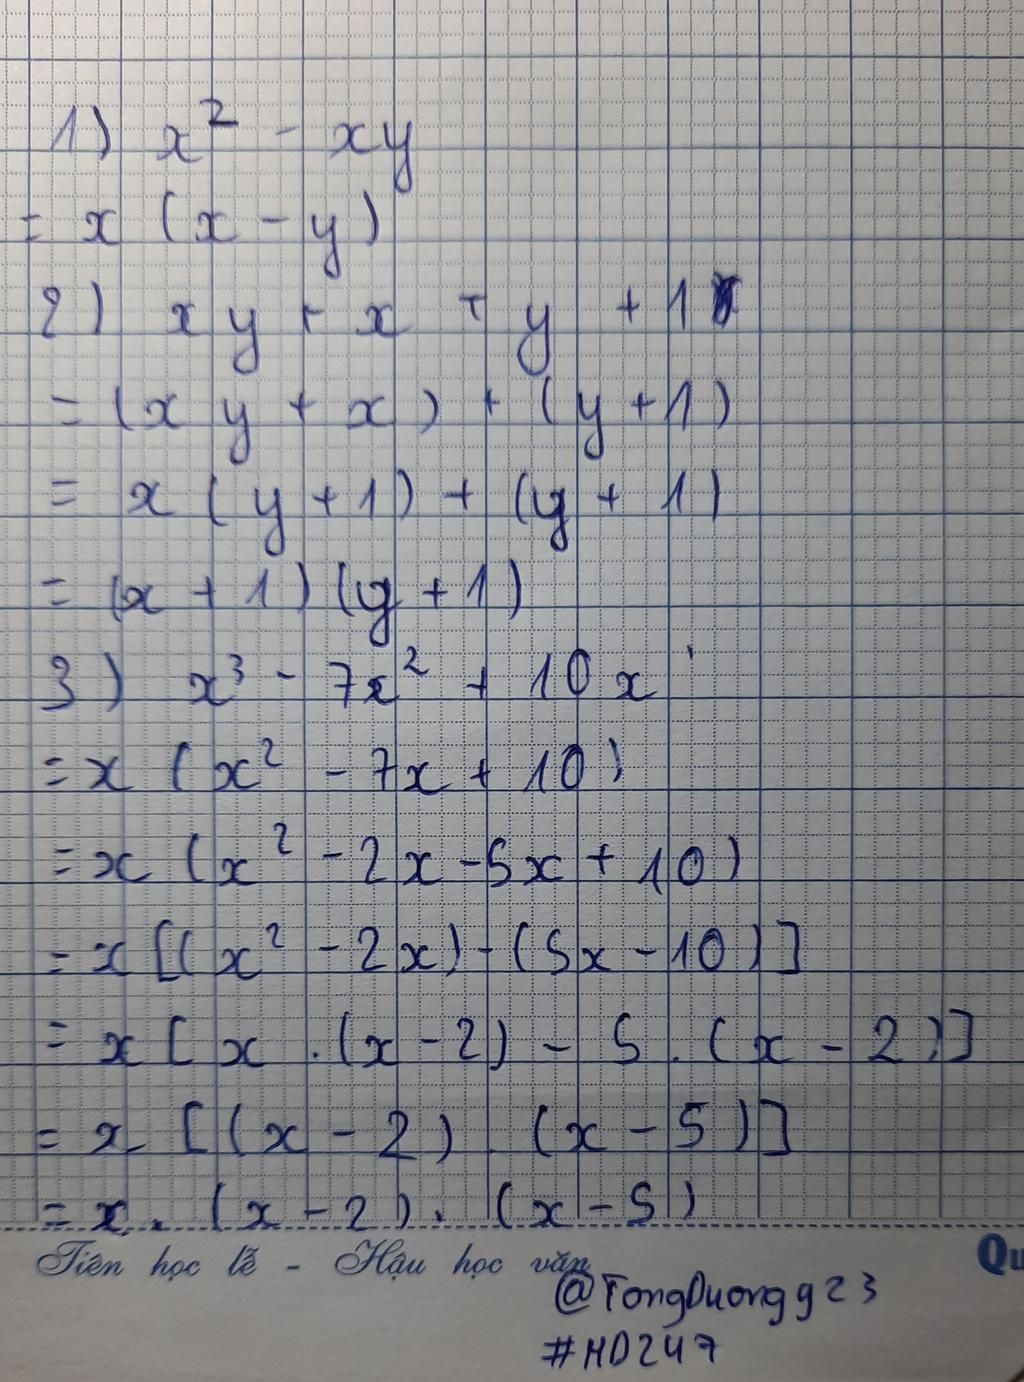 1) x² - xy
= x (x - y)
2) xy + x + y + 1
= (xy + x) + (y + 1)
= x (y + 1) + (y + 1)
= (x + 1) (y + 1)
3) x³ - 7x² + 10x
= x (x² - 7x + 10)
= x (x² - 2x - 5x + 10)
= x [(x² - 2x) - (5x - 10)]
= x [x . (x - 2) - 5 . (x - 2)]
= x [(x - 2) . (x - 5)]
= x . (x - 2) . (x - 5)
Tiên học lễ - Hậu học văn Qu
@TongDuongg23
#HD247